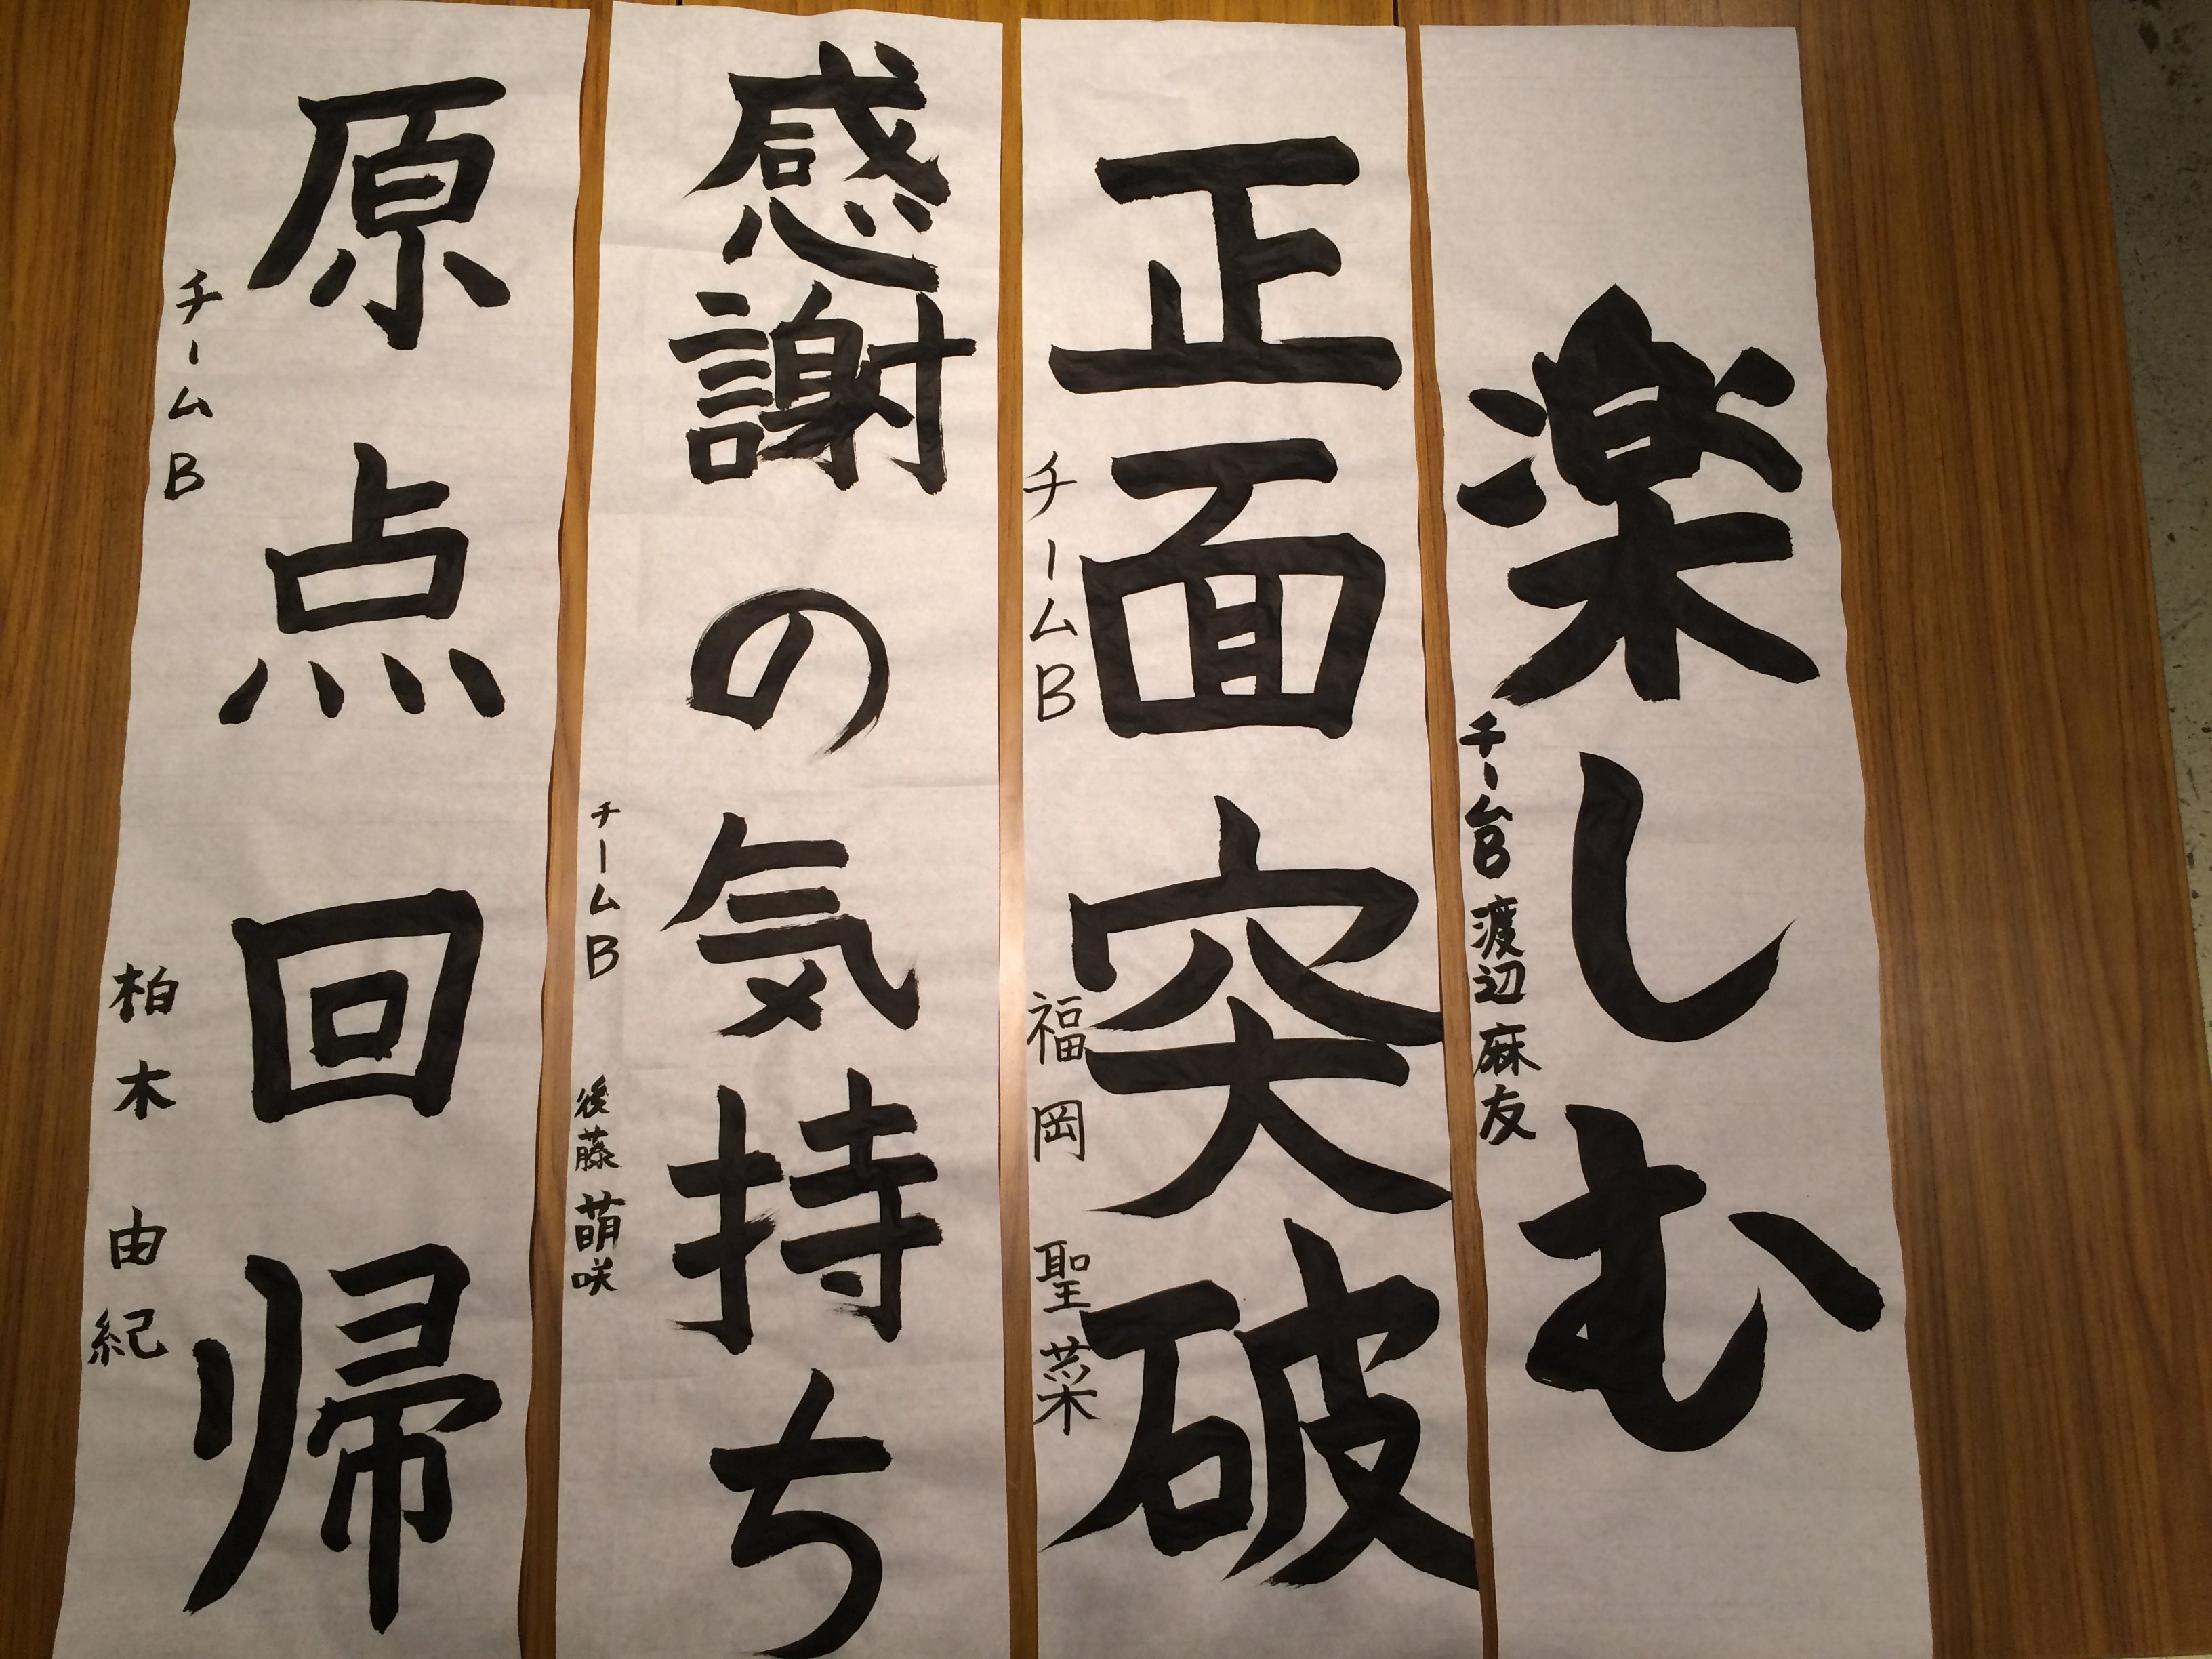 楽しむ
チームB 渡辺麻友
正面突破
チームB 福岡聖菜
感謝の気持ち
チームB 後藤萌咲
原点回帰
チームB 柏木由紀